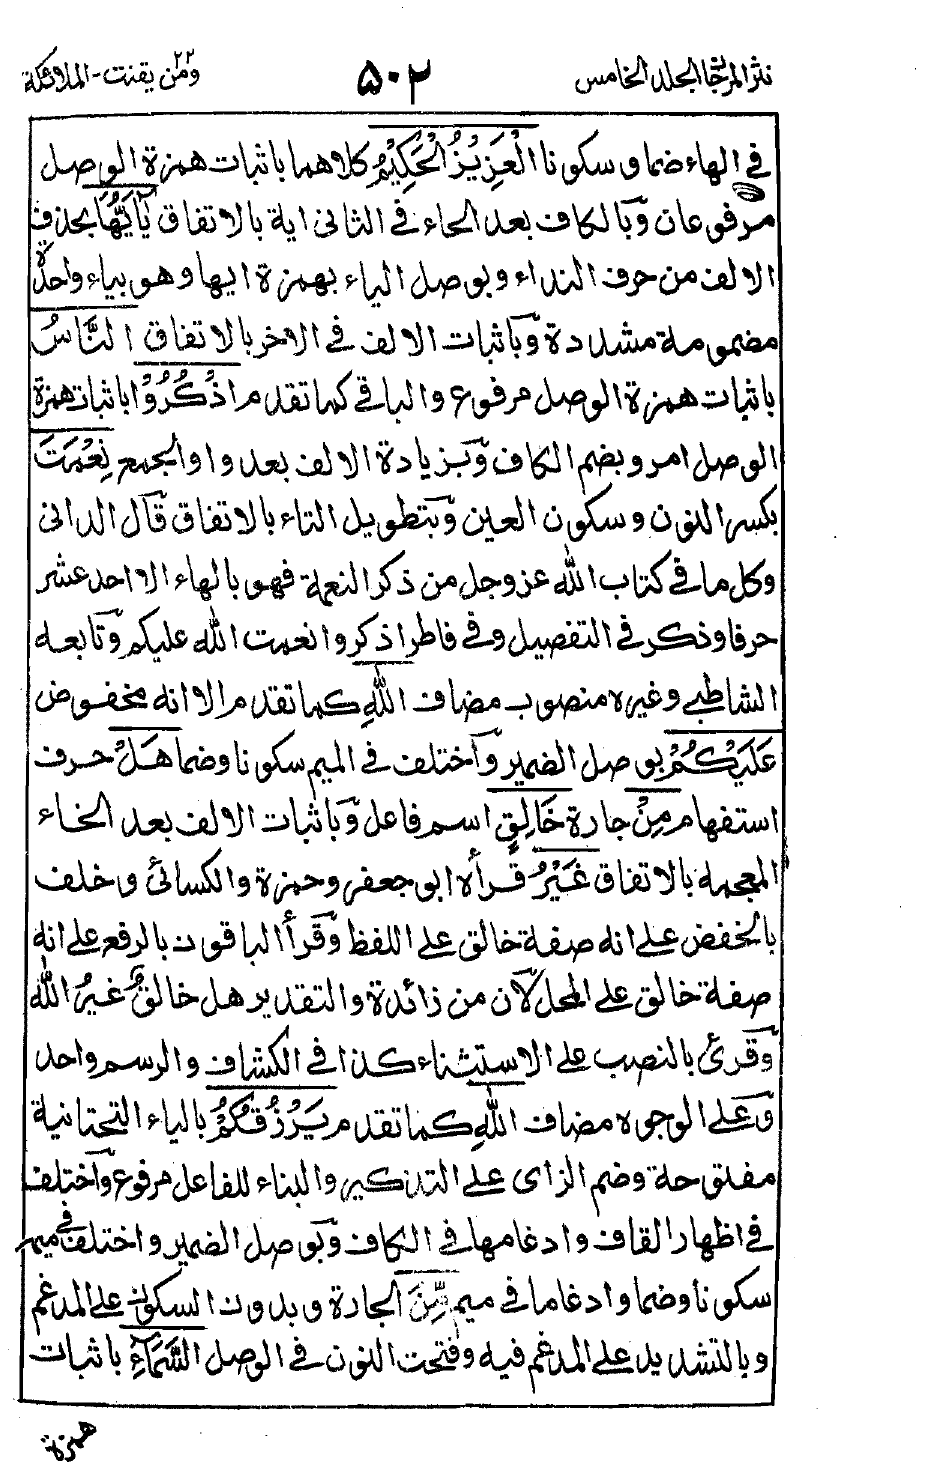 نثر المرجان المجلد الخامس
٥٠٢
ومن يقنت ٢٢ - الملائكة
في الهاء ضما وسكونا الْعَزِيْزُ الْحَكِيْمُ كلاهما باثبات همزة الوصل
مرفوعان وبالكاف بعد الحاء في الثاني اية بالاتفاق يٰٓاَيُّهَا بحذف
الالف من حرف النداء وبوصل الياء بهمزة ايها وهو بياء واحدة
مضمومة مشددة وباثبات الالف في الاخر بالاتفاق النَّاسُ
باثبات همزة الوصل مرفوع والباقي كما تقدم اذْكُرُوْا باثبات همزة
الوصل امر وبضم الكاف وبزيادة الالف بعد واو الجمع نِعْمَتَ
بكسر النون وسكون العين وبتطويل التاء بالاتفاق قال الداني
وكل ما في كتاب الله عز وجل من ذكر النعمة فهو بالهاء الا احد عشر
حرفا وذكر في التفصيل وفي فاطر اذكروا نعمت الله عليكم وتابعه
الشاطبي وغيره منصوب مضاف اللّٰهِ كما تقدم الا انه مخفوض
عَلَيْكُمْ بوصل الضمير واختلف في الميم سكونا وضما هَلْ حرف
استفهام مِنْ جارة خَالِقٍ اسم فاعل وباثبات الالف بعد الخاء
المعجمة بالاتفاق غَيْرُ قرأه ابو جعفر وحمزة والكسائي وخلف
بالخفض على انه صفة خالق على اللفظ وقرأ الباقون بالرفع على انه
صفة خالق على المحل لان من زائدة والتقدير هل خالقٌ غيرُ الله
وقرئ بالنصب على الاستثناء كذا في الكشاف والرسم واحد
وعلى الوجوه مضاف اللّٰهِ كما تقدم يَرْزُقُكُمْ بالياء التحتانية
مفتوحة وضم الزاي على التذكير والبناء للفاعل مرفوع واختلف
في اظهار القاف وادغامها في الكاف وبوصل الضمير واختلف في ميمه
سكونا وضما وادغاما في ميم مِّنَ الجارة وبدون السكون على المدغم
وبالتشديد على المدغم فيه وفتحت النون في الوصل السَّمَآءِ باثبات
همزة